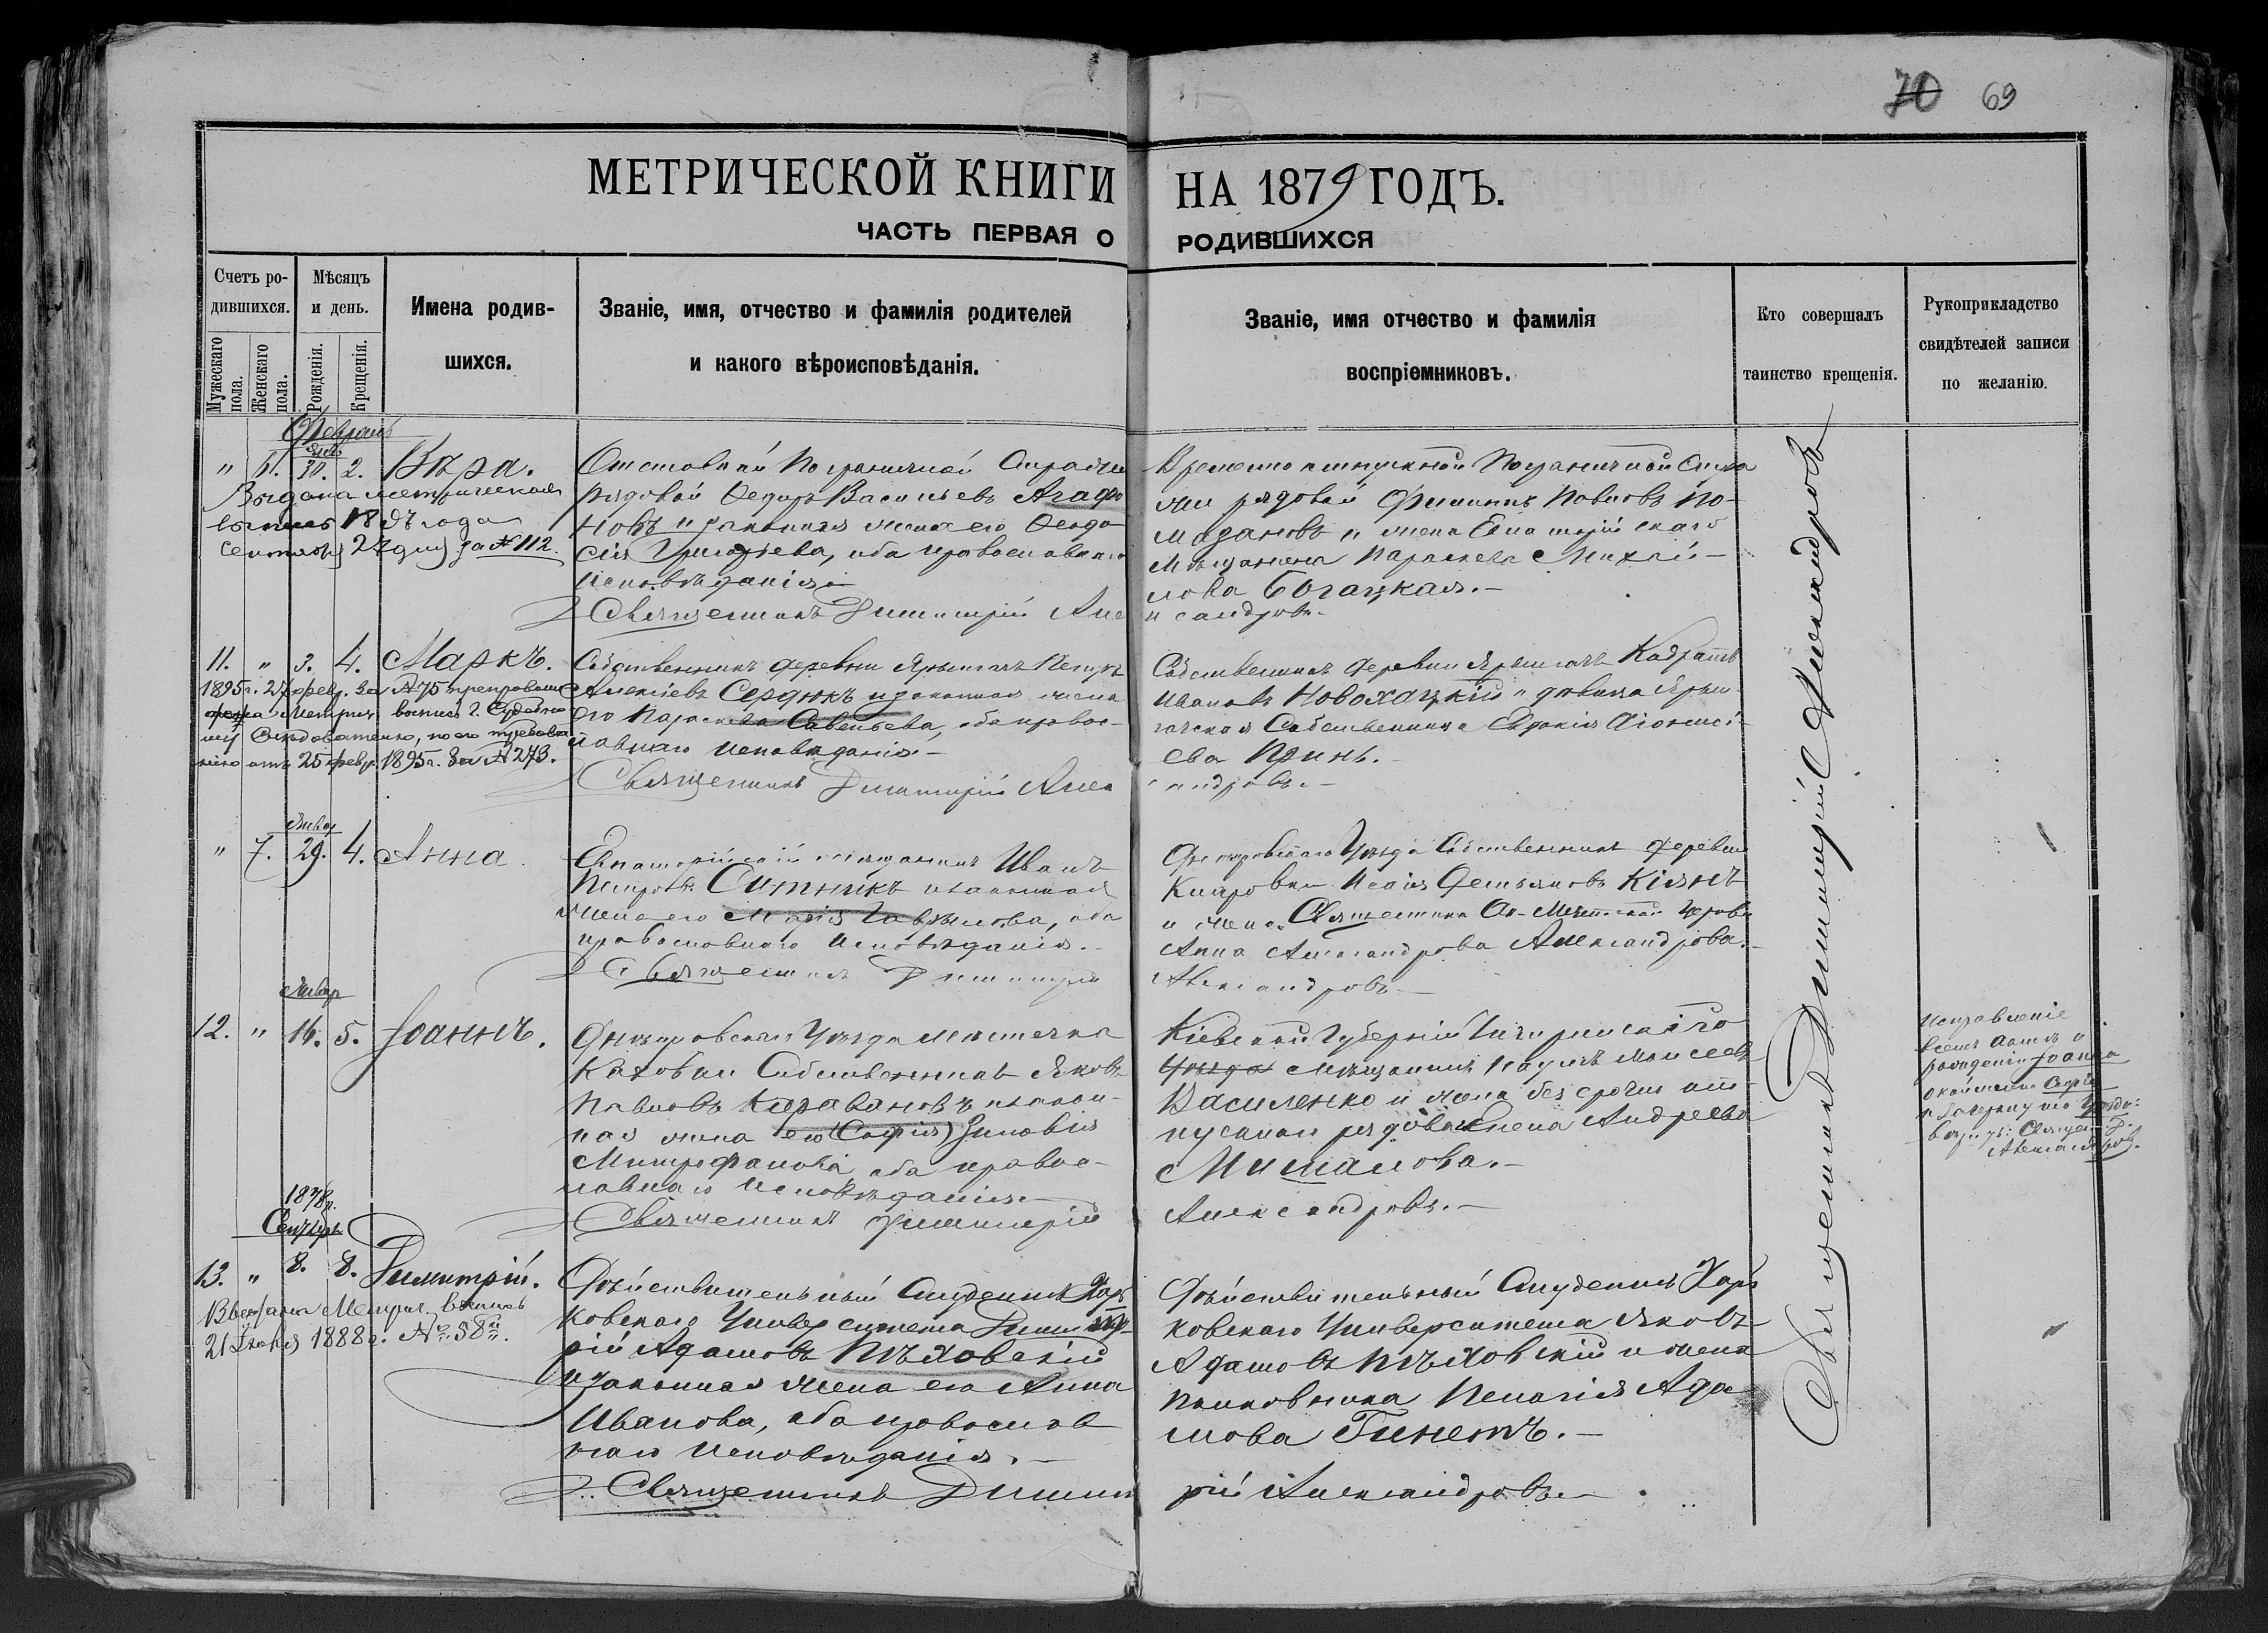 70 69
МЕТРИЧЕСКОЙ КНИГИ НА 1879 ГОДЪ.
ЧАСТЬ ПЕРВАЯ О РОДИВШИХСЯ
Счетъ ро-
дившихся.
Мужескаго пола.
Женскаго пола.
Мѣсяцъ
и день.
Рожденія.
Крещенія.
Имена родив-
шихся.
Званіе, имя, отчество и фамилія родителей
и какого вѣроисповѣданія.
Званіе, имя отчество и фамилія
воспріемниковъ.
Кто совершалъ
таинство крещенія.
Рукоприкладство
свидѣтелей записи
по желанію.
Февраль
" 6. 30. 2. Вѣра.
Выдана метрическая
выпись 18 года
Сентября 27 дня за № 112.
Отставной Пограничной Стражи
рядовой Федоръ Васильевъ Агафо
новъ и законная жена его Феодо
сія Григорьева, оба православнаго
исповѣданія
Священникъ Димитрій Алек
сандровъ.
Временно отпускной Пограничной Стра
жи рядовой Филиппъ Павловъ По-
мазановъ и жена Евпаторійскаго
мѣщанина Параскева Михай-
лова Богацкая.
11. " 3. 4. Маркъ.
1895 г. 27 февр. за № 75 препровож
дена Метрич. выпись г. Судебно
му Слѣдователю, по его требова
нію отъ 25 февр. 1895 г. за № 273.
Собственникъ деревни Ярылгачъ Петръ
Алексіевъ Сердюкъ и законная жена
его Параскева Савельева, оба правос-
лавнаго исповѣданія.
Священникъ Димитрій Алек
сандровъ.
Собственникъ деревни Ярылгачъ Кодратъ
Ивановъ Новохацкій и дѣвица Ярыл-
гачская Собственница Евдокія Діонисі-
ева Принь.
Январ
" 7. 29. 4. Анна.
Евпаторійскій мѣщанинъ Иванъ
Петровъ Ситникъ и законная
жена его Марія Гаврилова, оба
православнаго исповѣданія.
Священникъ Димитрій
Александровъ
Днѣпровскаго Уѣзда Собственникъ деревни
Каировки Исаія Демьяновъ Кіянъ
и жена Священника Ак-Мечетской Церкви
Анна Александрова Александрова.
Январ
12. " 16. 5. Іоаннъ.
Днѣпровскаго Уѣзда мѣстечка
Каховки Собственникъ Яковъ
Павловъ Каравановъ и закон-
ная жена его (Софія) Зиновія
Митрофанова оба правос-
лавнаго исповѣданія
Священникъ Димитрій
Александровъ.
Кіевской Губерніи Чигиринскаго
Уѣзда мѣщанинъ Наумъ Моисеевъ
Василенко и жена безсрочно от-
пускнаго рядоваго Елена Андреева
Мималова.
Исправленіе
рожденіи Іоанна
Священ. Д.
Александров.
1878 г.
Сентябрь
13. " 8. 8. Димитрій.
Выдана Метрич. выпись
21 Іюня 1888 г. № 58.
Дѣйствительный Студентъ Харь
ковскаго Университета Димит
рій Адамовъ Пѣховскій
и законная жена его Анна
Иванова, оба православ
наго исповѣданія.
Священникъ Димит
рій Александровъ.
Дѣйствительный Студентъ Харь
ковскаго Университета Яковъ
Адамовъ Пѣховскій и жена
Полковника Пелагія Ада
мова Гинетъ.
Священникъ Димитрій Александровъ